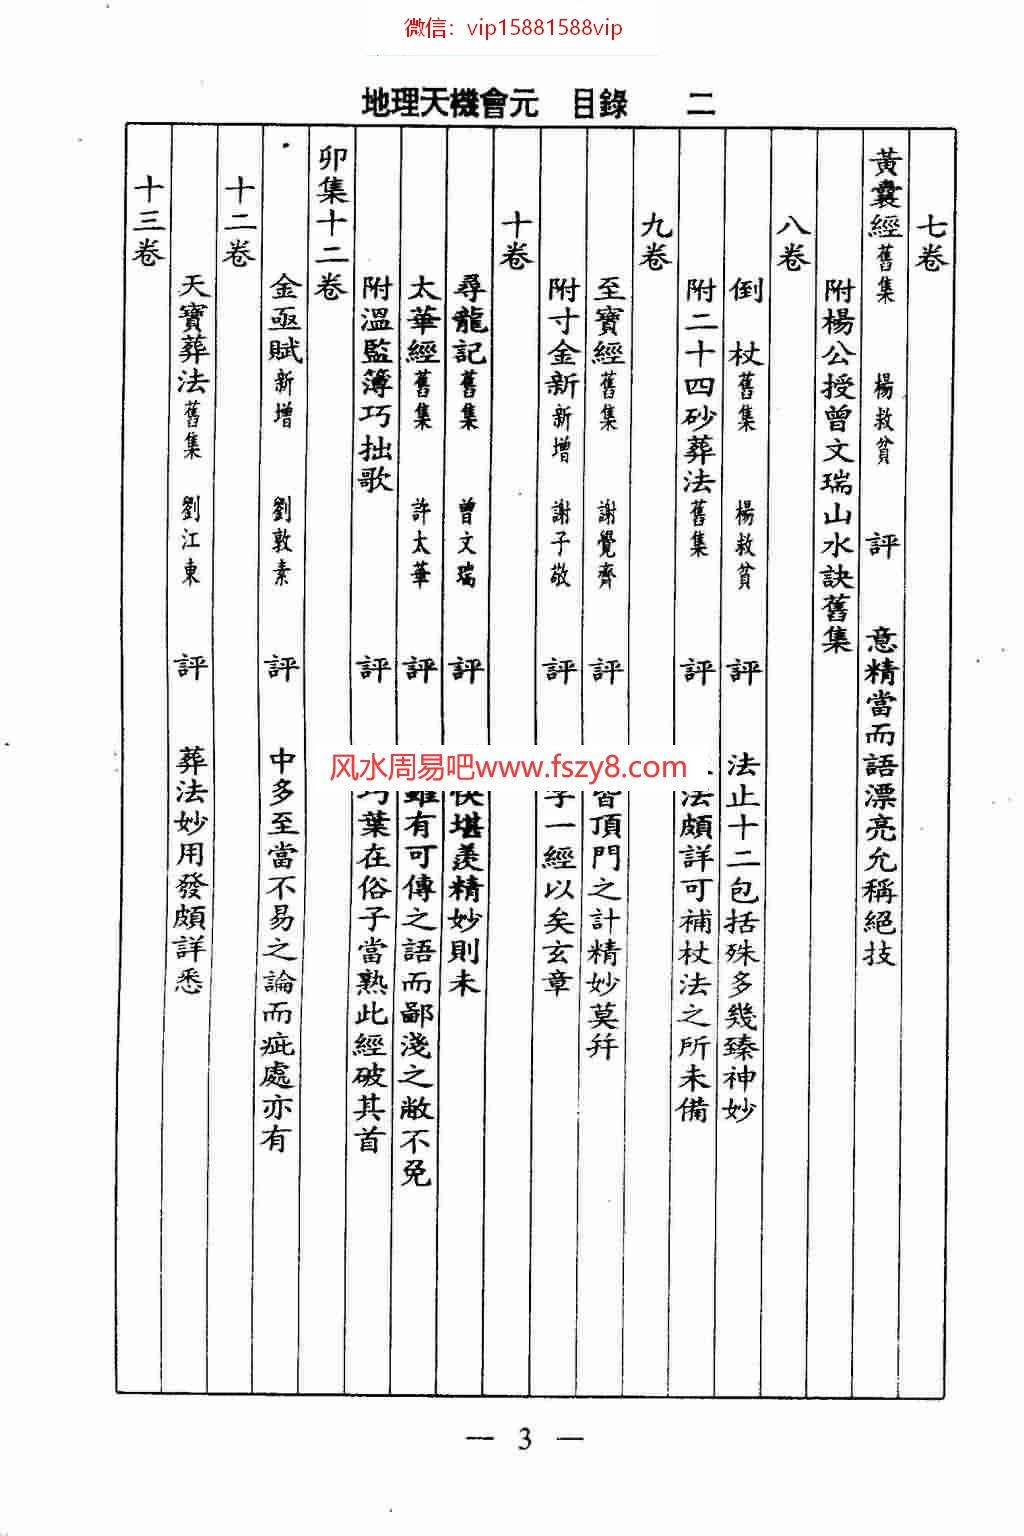 微信：vip15881588vip
地理天機會元　目錄　二
七卷
黃囊經舊集　楊救貧　評　意精當而語漂亮允稱絕技
附楊公授曾文瑞山水訣舊集
八卷
倒杖舊集　楊救貧　評　法止十二包括殊多幾臻神妙
附二十四砂葬法舊集　評　法頗詳可補杖法之所未備
九卷
至寶經舊集　謝覺齊　評　皆頂門之計精妙莫并
附寸金新新增　謝子敬　評　字一經以矣玄章
十卷
尋龍記舊集　曾文瑞　評　快堪羨精妙則未
太華經舊集　許太華　評　雖有可傳之語而鄙淺之敝不免
附溫監簿巧拙歌　評　巧葉在俗子當熟此經破其首
卯集十二卷
金函賦新增　劉敦素　評　中多至當不易之論而疵處亦有
十二卷
天寶葬法舊集　劉江東　評　葬法妙用發頗詳悉
十三卷
风水周易吧www.fszy8.com
— 3 —